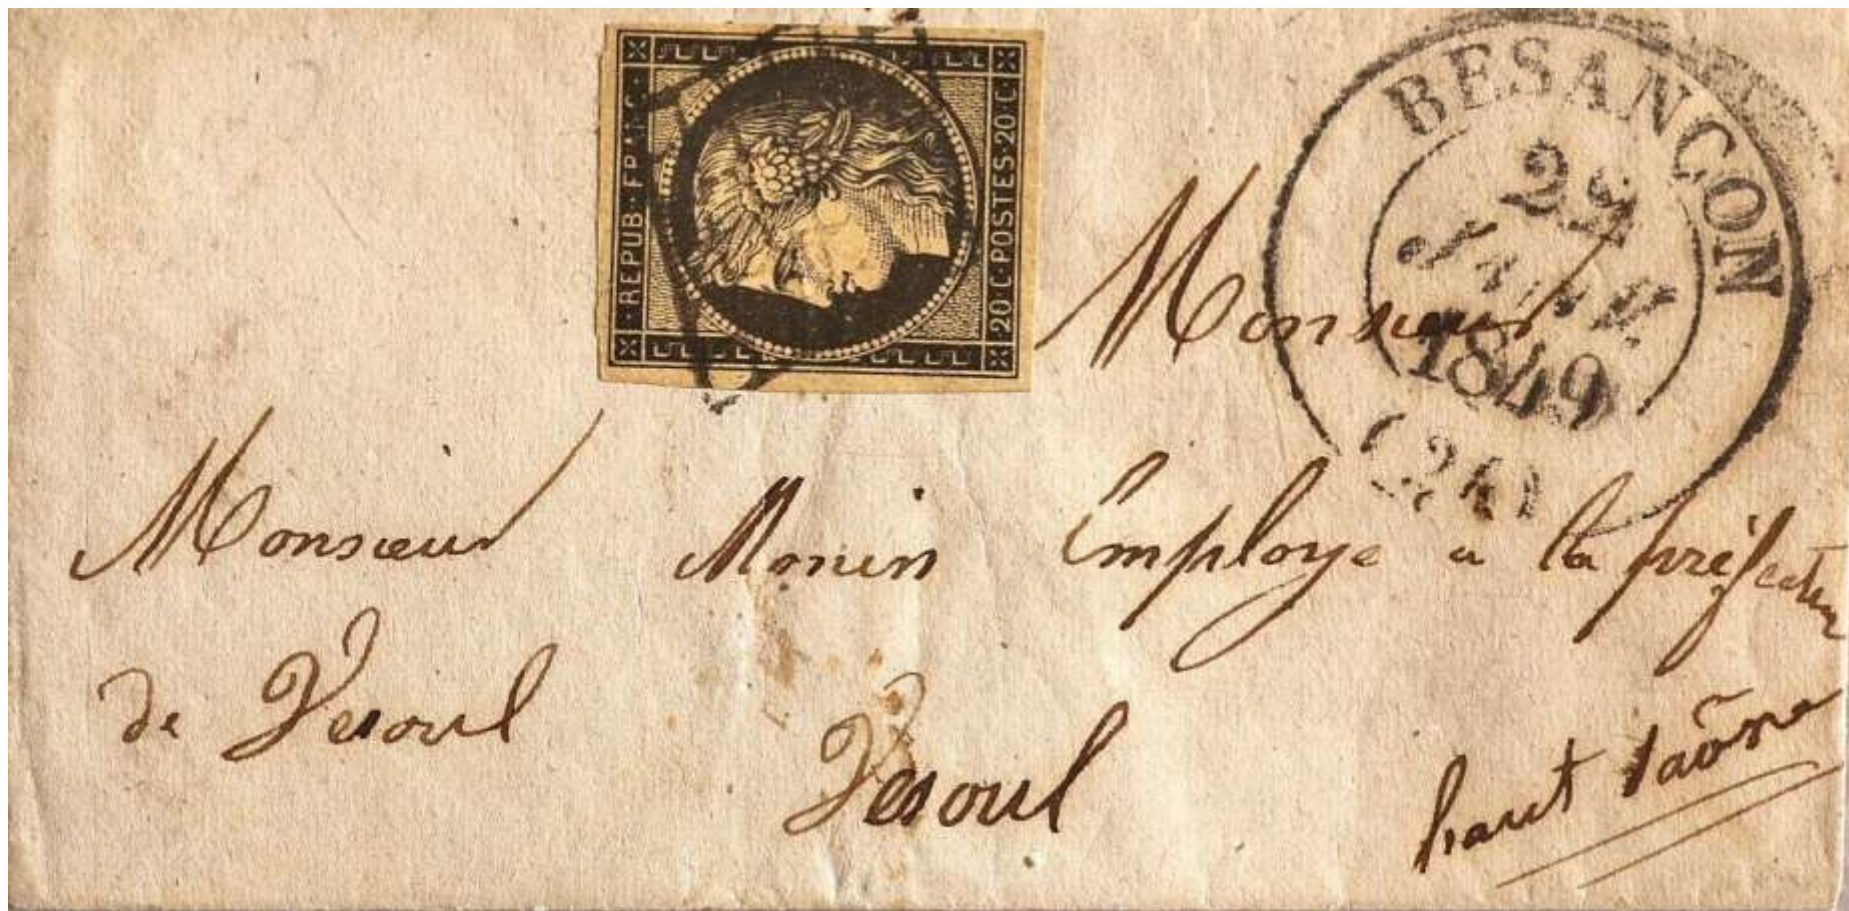 REPUB·FRANC·
20 C·POSTES·20 C·
BESANÇON
22
JANV.
1849
(24)
Monsieur
Monsieur Monin Employe a la préfecture
de Vesoul
Vesoul
haut saône